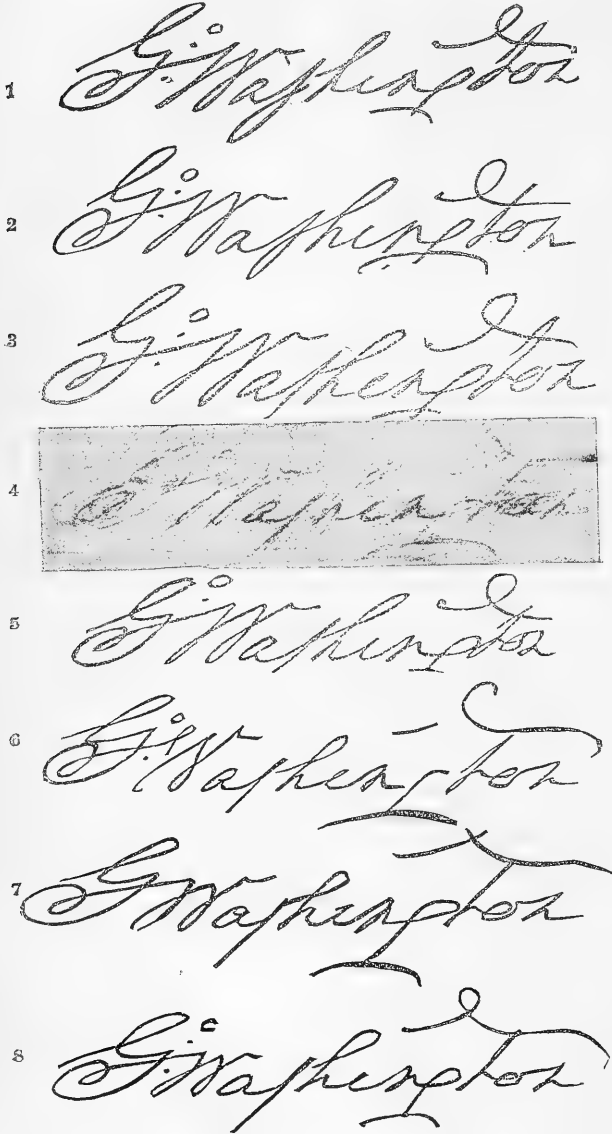 1 Gº: Waſhington
2 Gº: Waſhington
3 Gº: Waſhington
4 G Waſhington
5 Gº: Waſhington
6 Gº: Waſhington
7 G Waſhington
8 Gº: Waſhington